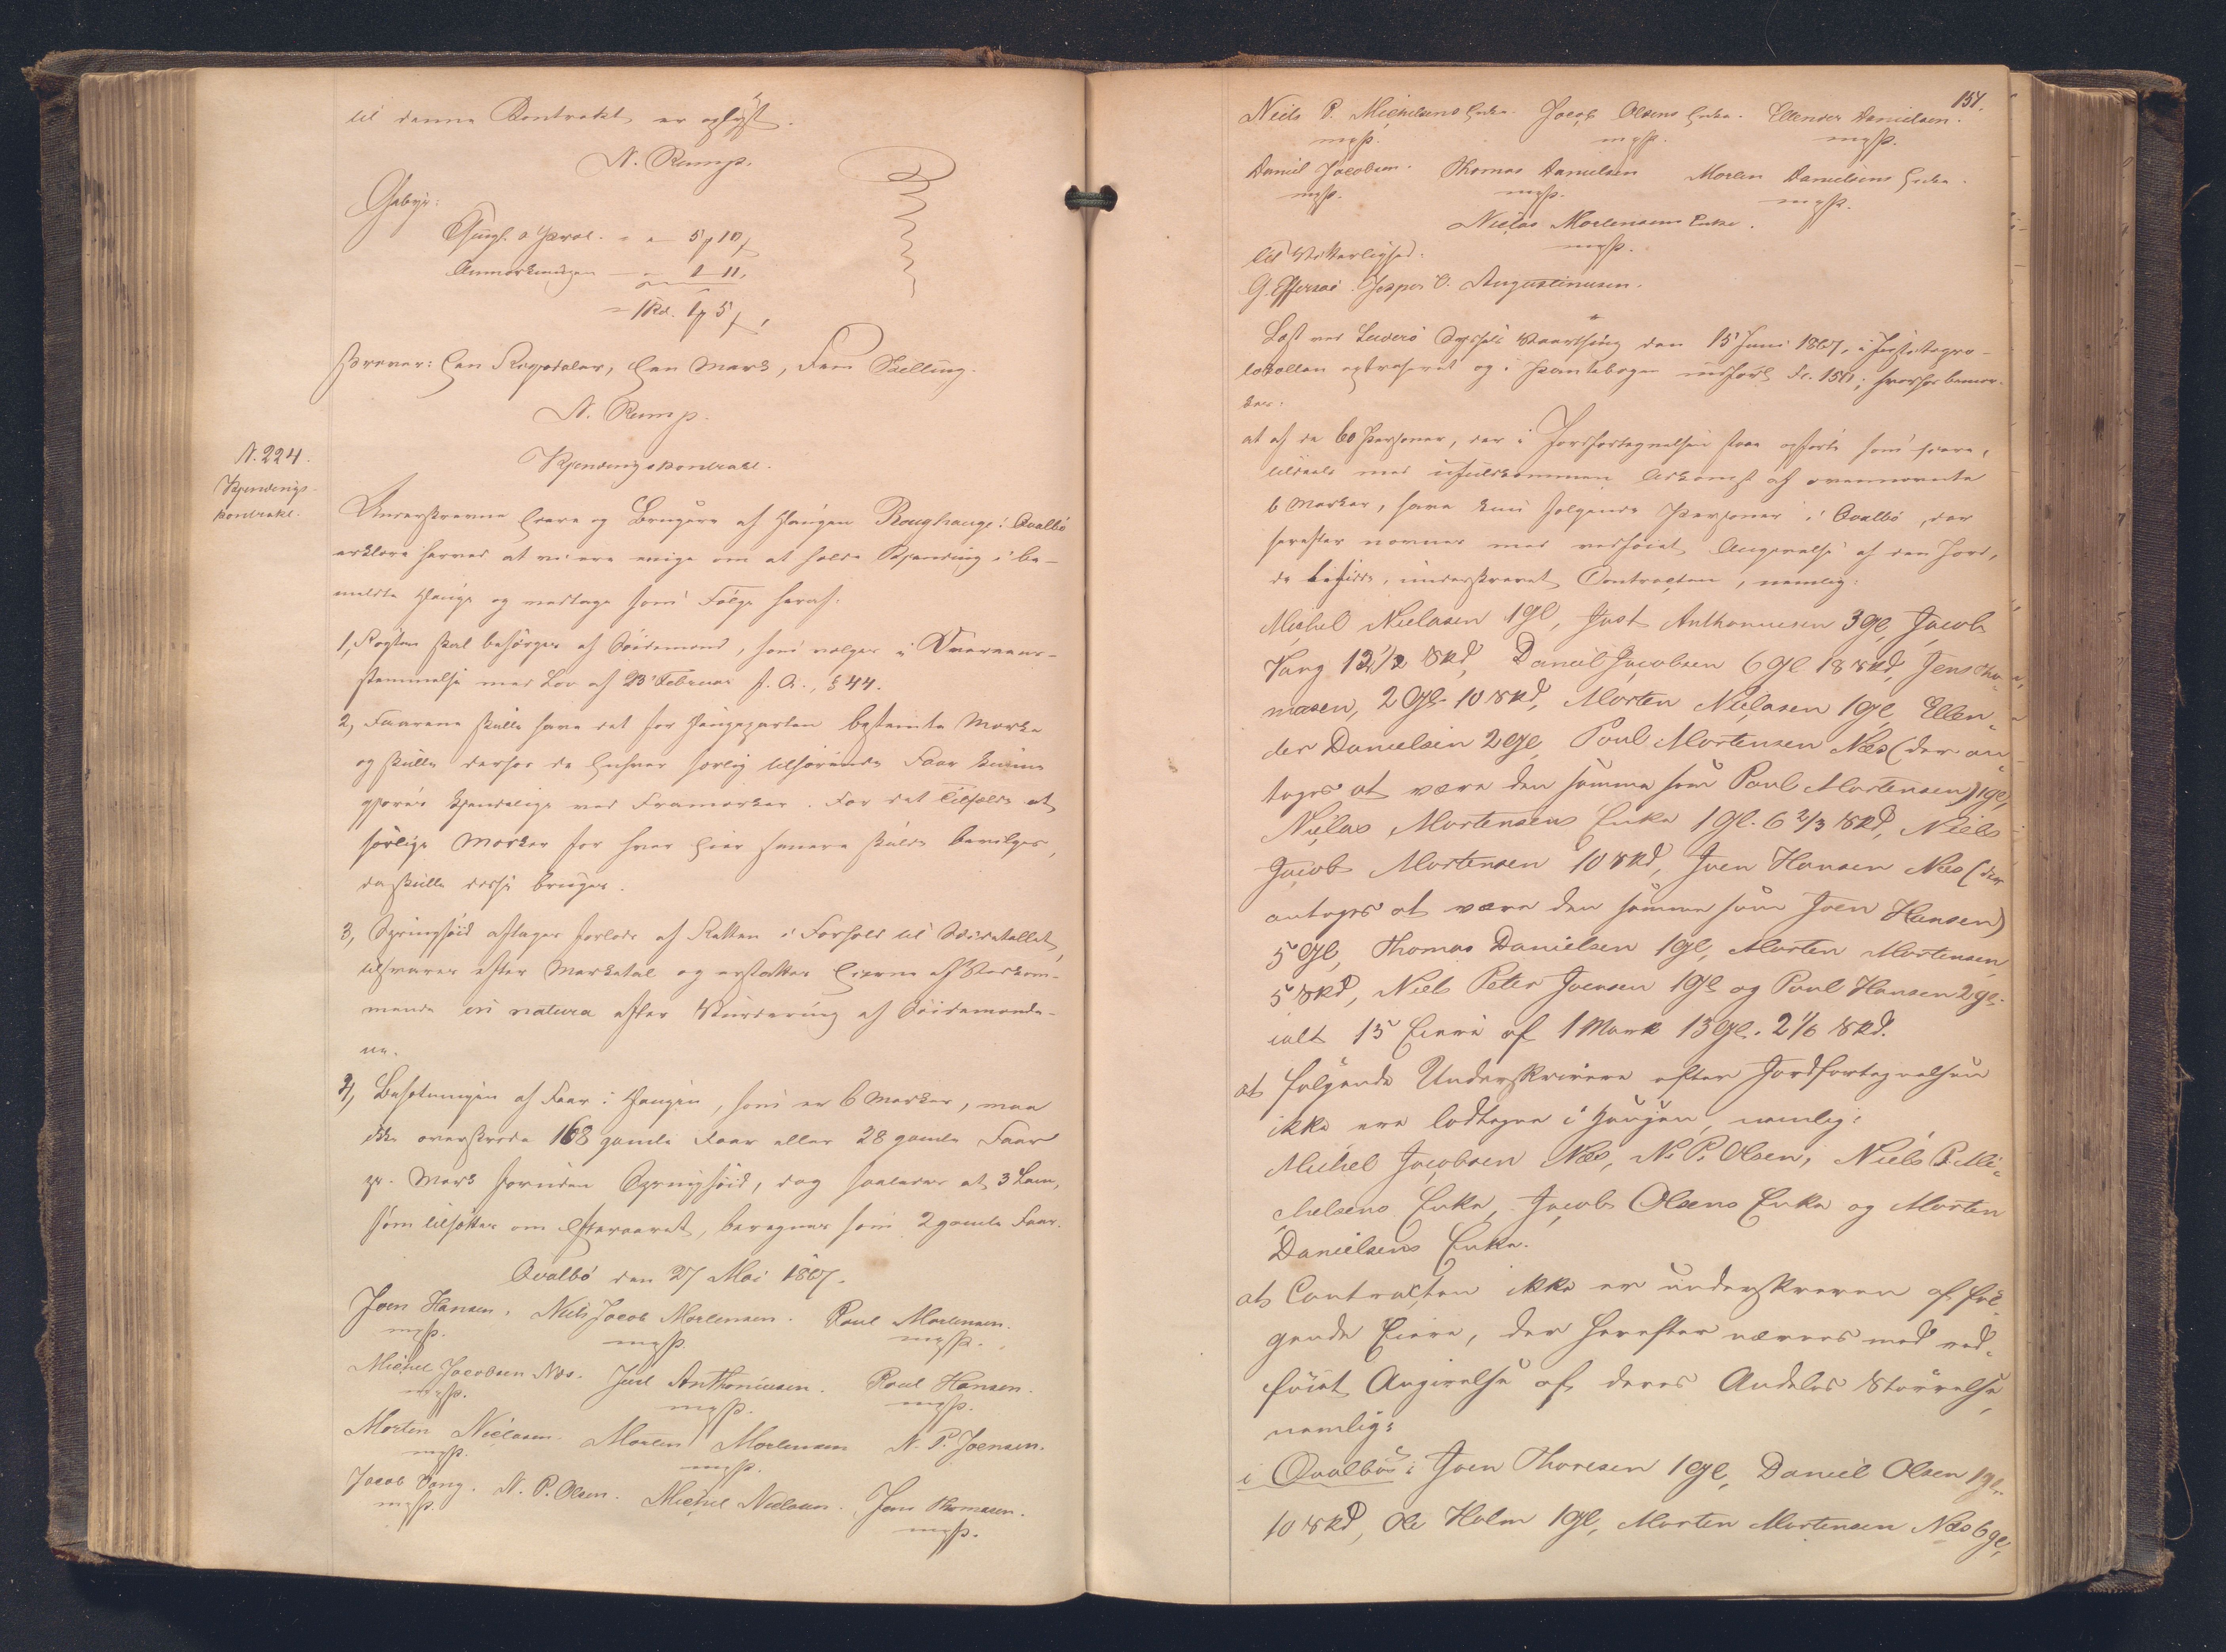 til denne Contrakt er oplyst.
N. Rump.
Gebyr:
Thingl. a Prvot. " " 5 ƥ 10 ʄ
Anmærkningen — " 1 — 11.
= 1 Rd. 1 ƥ 5 ʄ.
skriver: Een Rigsdaler, Een Mark, Fem Skilling.
N. Rump.
N. 224.
Kjendings-
kontrakt.
Kjendingskontrakt.
Underskrevne Eiere og Brugere af Haugen Roughauge i Qvalbø
erklære herved at vi ere enige om at holde Kjending i be-
meldte Hauge og vedtage som Følge heraf:
1, Røgten skal besørges af Opsidsmænd, som vælges i Overeens-
stemmelse med Lov af 23 Februar f. A., § 44.
2, Faarene skulle have det for Haugeparten bestemte Mærke
og skulle derfor de Enhver særlig tilhørende Faar kunne
gjøres kjendelige ved Framærker. For det Tilfælde at
særlige Mærker for hver Eier senere skulde bevilges,
da skulle disse bruges.
3, aftages forlods af Retten i Forhold til
tilsvares efter Marketal og erstattes Eierne af Vedkom-
mende in natura efter Vurdering af
ne.
4, Besætningen af Faar i Haugen, som er 6 Marker, maa
ikke overskride 168 gamle Faar eller 28 gamle Faar
pr. Mark foruden, dog saaledes at 3 Lam,
som tilsættes om Efteraaret, beregnes som 2 gamle Faar.
Qvalbø den 27 Mai 1867.
Joen Hansen. Niels Jacob Mortensen. Poul Mortensen.
mgP. mgP. mgP.
Michel Jacobsen Næs. Just Anthoniusen. Poul Hansen.
mgP. mgP. mgP.
Morten Nielasen. Morten Mortensen N. P. Joensen.
mgP. mgP.
Jacob Vang. N. P. Olsen. Michel Nielasen. Jens Thomasen.
mgP. mgP.
151.
Niels P. Michelsens Enke. Jacob Olsens Enke. Ellender Danielsen.
mgP. mgP. mgP.
Daniel Jacobsen. Thomas Danielsen Morten Danielsens Enke.
mgP. mgP. mgP.
Nielas Mortensens Enke.
mgP.
til Vitterlighed:
G. Effersøe. Jesper C. Augustinusen.
Læst ved Suderø Syssels Vaarthing den 15 Juni 1867, i Justitspro-
tokollen extraheret og i Pantebogen indført Fol. 150; hvorhos bemær-
kes:
at af de 60 Personer, der i Jordfortegnelsen staae opførte som Eiere,
tildeels med ufuldkommen Adkomst af ovennævnte
6 Marker, have kun følgende Personer i Qvalbø, der
herefter nævnes med vedføiet Angivelse af den Jord,
de besidde, underskrevet Contracten, nemlig:
Michel Nielasen 1 Gl, Just Anthoniusen 3 Gl, Jacob
Vang 12 1/2 Skd, Daniel Jacobsen 6 Gl 18 Skd, Jens Tho-
masen, 2 Gl. 10 Skd, Morten Nielasen 1 Gl, Ellen-
der Danielsen 2 Gl, Poul Mortensen Næs (der an-
tages at være den samme som Poul Mortensen) 1 Gl,
Nielas Mortensens Enke 1 Gl. 6 2/3 Skd, Niels
Jacob Mortensen 10 Skd, Joen Hansen Næs (der
antages at være den samme som Joen Hansen)
5 Gl, Thomas Danielsen 1 Gl, Morten Mortensen
5 Skd, Niels Peter Joensen 1 Gl og Poul Hansen 2 Gl.
ialt 15 Eiere af 1 Mark 13 Gl. 2 1/6 Skd.
at følgende Underskrivere efter Jordfortegnelsen
ikke ere lodtagne i Haugen, nemlig:
Michel Jacobsen Næs, N. P. Olsen, Niels P. Mi-
chelsens Enke, Jacob Olsens Enke og Morten
Danielsens Enke.
at Contracten ikke er underskreven af føl-
gende Eiere, der herefter nævnes med ved-
føiet Angivelse af deres Andeles Størrelse,
nemlig:
i Qvalbø: Joen Thoresen 1 Gl, Daniel Olsen 1 Gl.
10 Skd, Ole Holm 1 Gl, Morten Mortensen Næs 6 Gl,